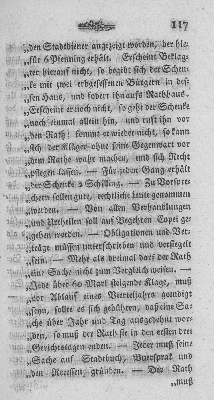 117
„den Stadtdiener angezeigt worden, der hie-
„für 6 Pfenning erhält. Erscheint Beklag-
„ter hierauf nicht, so begibt sich der Schen-
„ke mit zwei erbgesessenen Bürgern in des-
„sen Haus, und fodert ihn aufs Rathhaus.
„Erscheint er noch nicht, so geht der Schenke
„noch einmal allein hin, und ruft ihn vor
„den Rath: kommt er wieder nicht, so kann
„sich der Kläger ohne seine Gegenwart vor
„dem Rathe wahr machen, und sich Recht
„pflegen lassen. — Für jeden Gang erhält
„der Schenke 2 Schilling. — Zu Vorspre-
„chern sollen gute, rechtliche Leute genommen
„werden. — Von allen Verhandlungen
„und Urtheilen soll auf Begehren Copei ge-
„geben werden. — Obligationen und Ver-
„träge müssen unterschrieben und versiegelt
„sein. — Mehr als dreimal darf der Rath
„eine Sache nicht zum Vergleich weisen. —
„Jede über 60 Mark steigende Klage, muß
„vor Ablauf eines Vierteljahres geendigt
„seyn, sollte es sich gebühren, daß eine Sa-
„che über Jahr und Tag ausgedehnt wor-
„den, so muß der Rath sie in den ersten drei
„Gerichtstagen enden. — Jeder muß seine
„Sache auf Stadtbuch, Bursprak und
„den Recessen gründen. — Der Rath
„muß